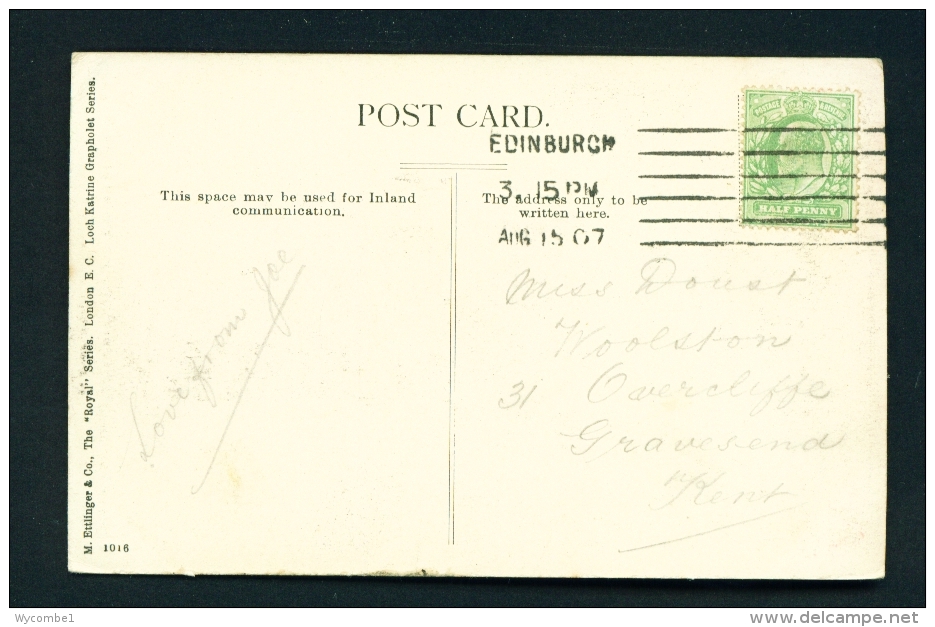 POST CARD.
EDINBURGH
3. 15 PM
AUG 15 07
POSTAGE REVENUE
HALF PENNY
This space may be used for Inland
communication.
The address only to be
written here.
Love from Joe
Miss Doust
Woolston
31 Overcliffe
Gravesend
Kent
M. Ettlinger & Co., The "Royal" Series. London E. C. Loch Katrine Grapholet Series.
1016
Wycombe1
delcampe.net